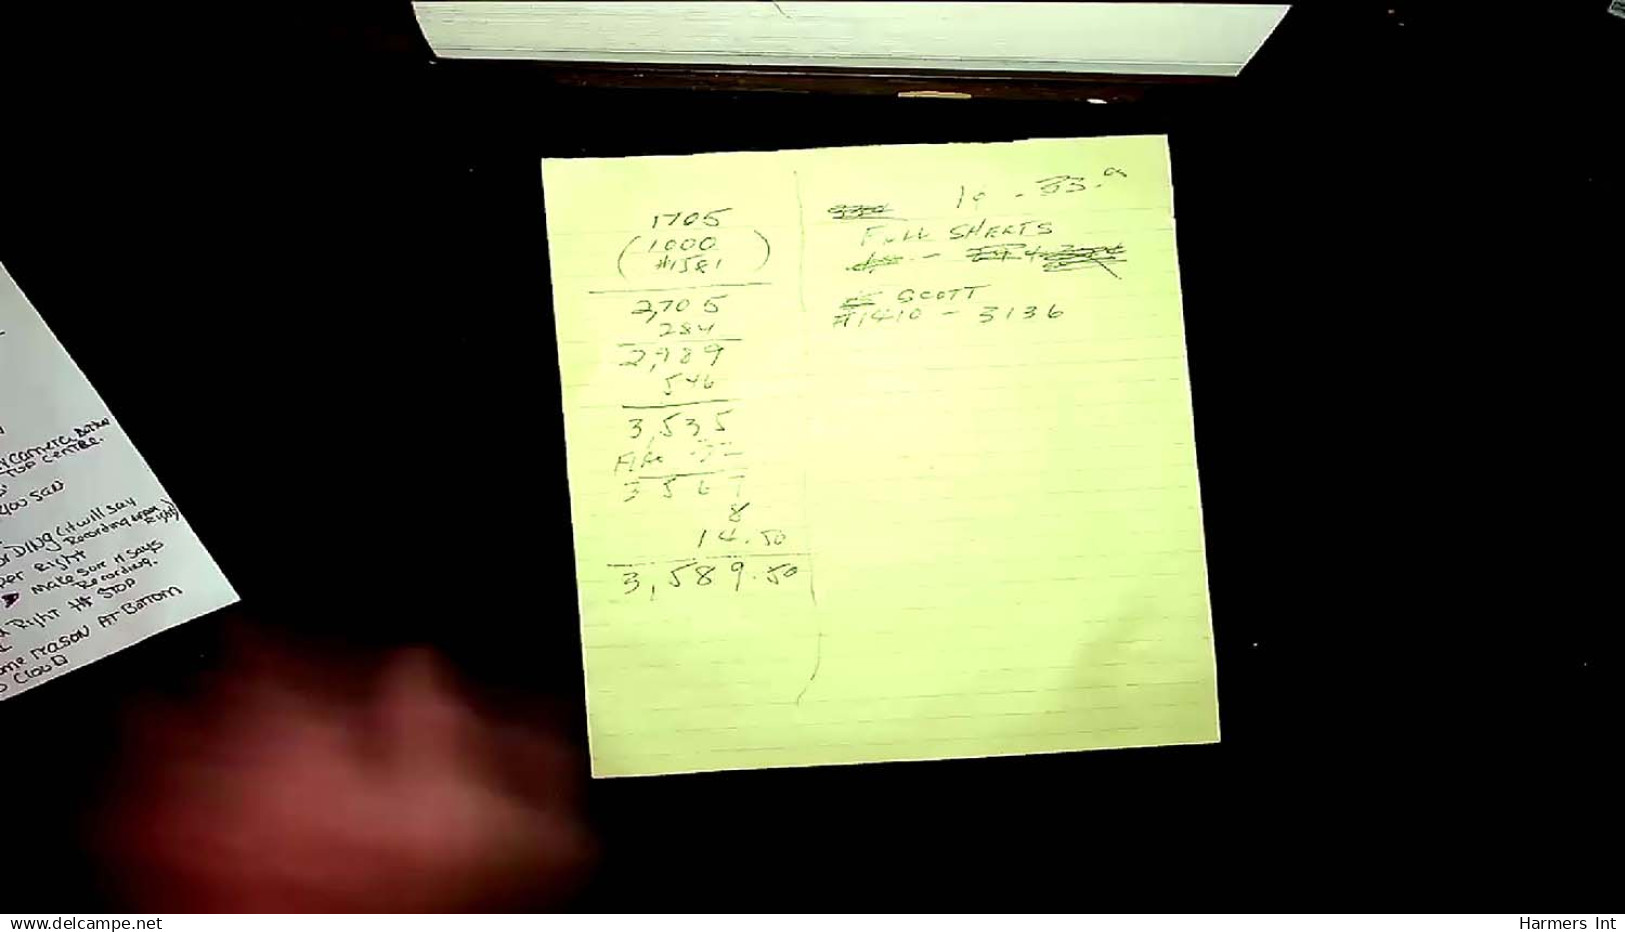 1705
(1000
#1581)
2,705
284
2,989
546
3,535
3567
8
14.50
3,589.50
1¢ - 33.
FULL SHEETS
SCOTT
#1410 - 3136
TOP CENTRE.
YOU SAID
ORDING (it will say
Recording upper
Right)
per Right
make sure it says
Recording.
Right Hit STOP
ome reason AT Bottom
CLOUD
www.delcampe.net
Harmers Int